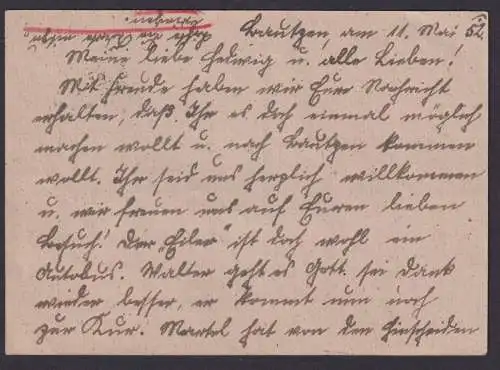 Bautzen, am 11. Mai 52.
Meine liebe Hedwig u. alle Lieben!
Mit Freude haben wir Eure Nachricht
erhalten, daß Ihr es doch einmal möglich
machen wollt u. nach Bautzen kommen
wollt. Ihr seid uns herzlich willkommen
u. wir freuen uns auf Euren lieben
Besuch! Der „Eiler" ist doch wohl ein
Autobus. Walter geht es Gott sei dank
wieder besser, er kommt nun noch
zur Kur. Martel hat von den Hinscheiden